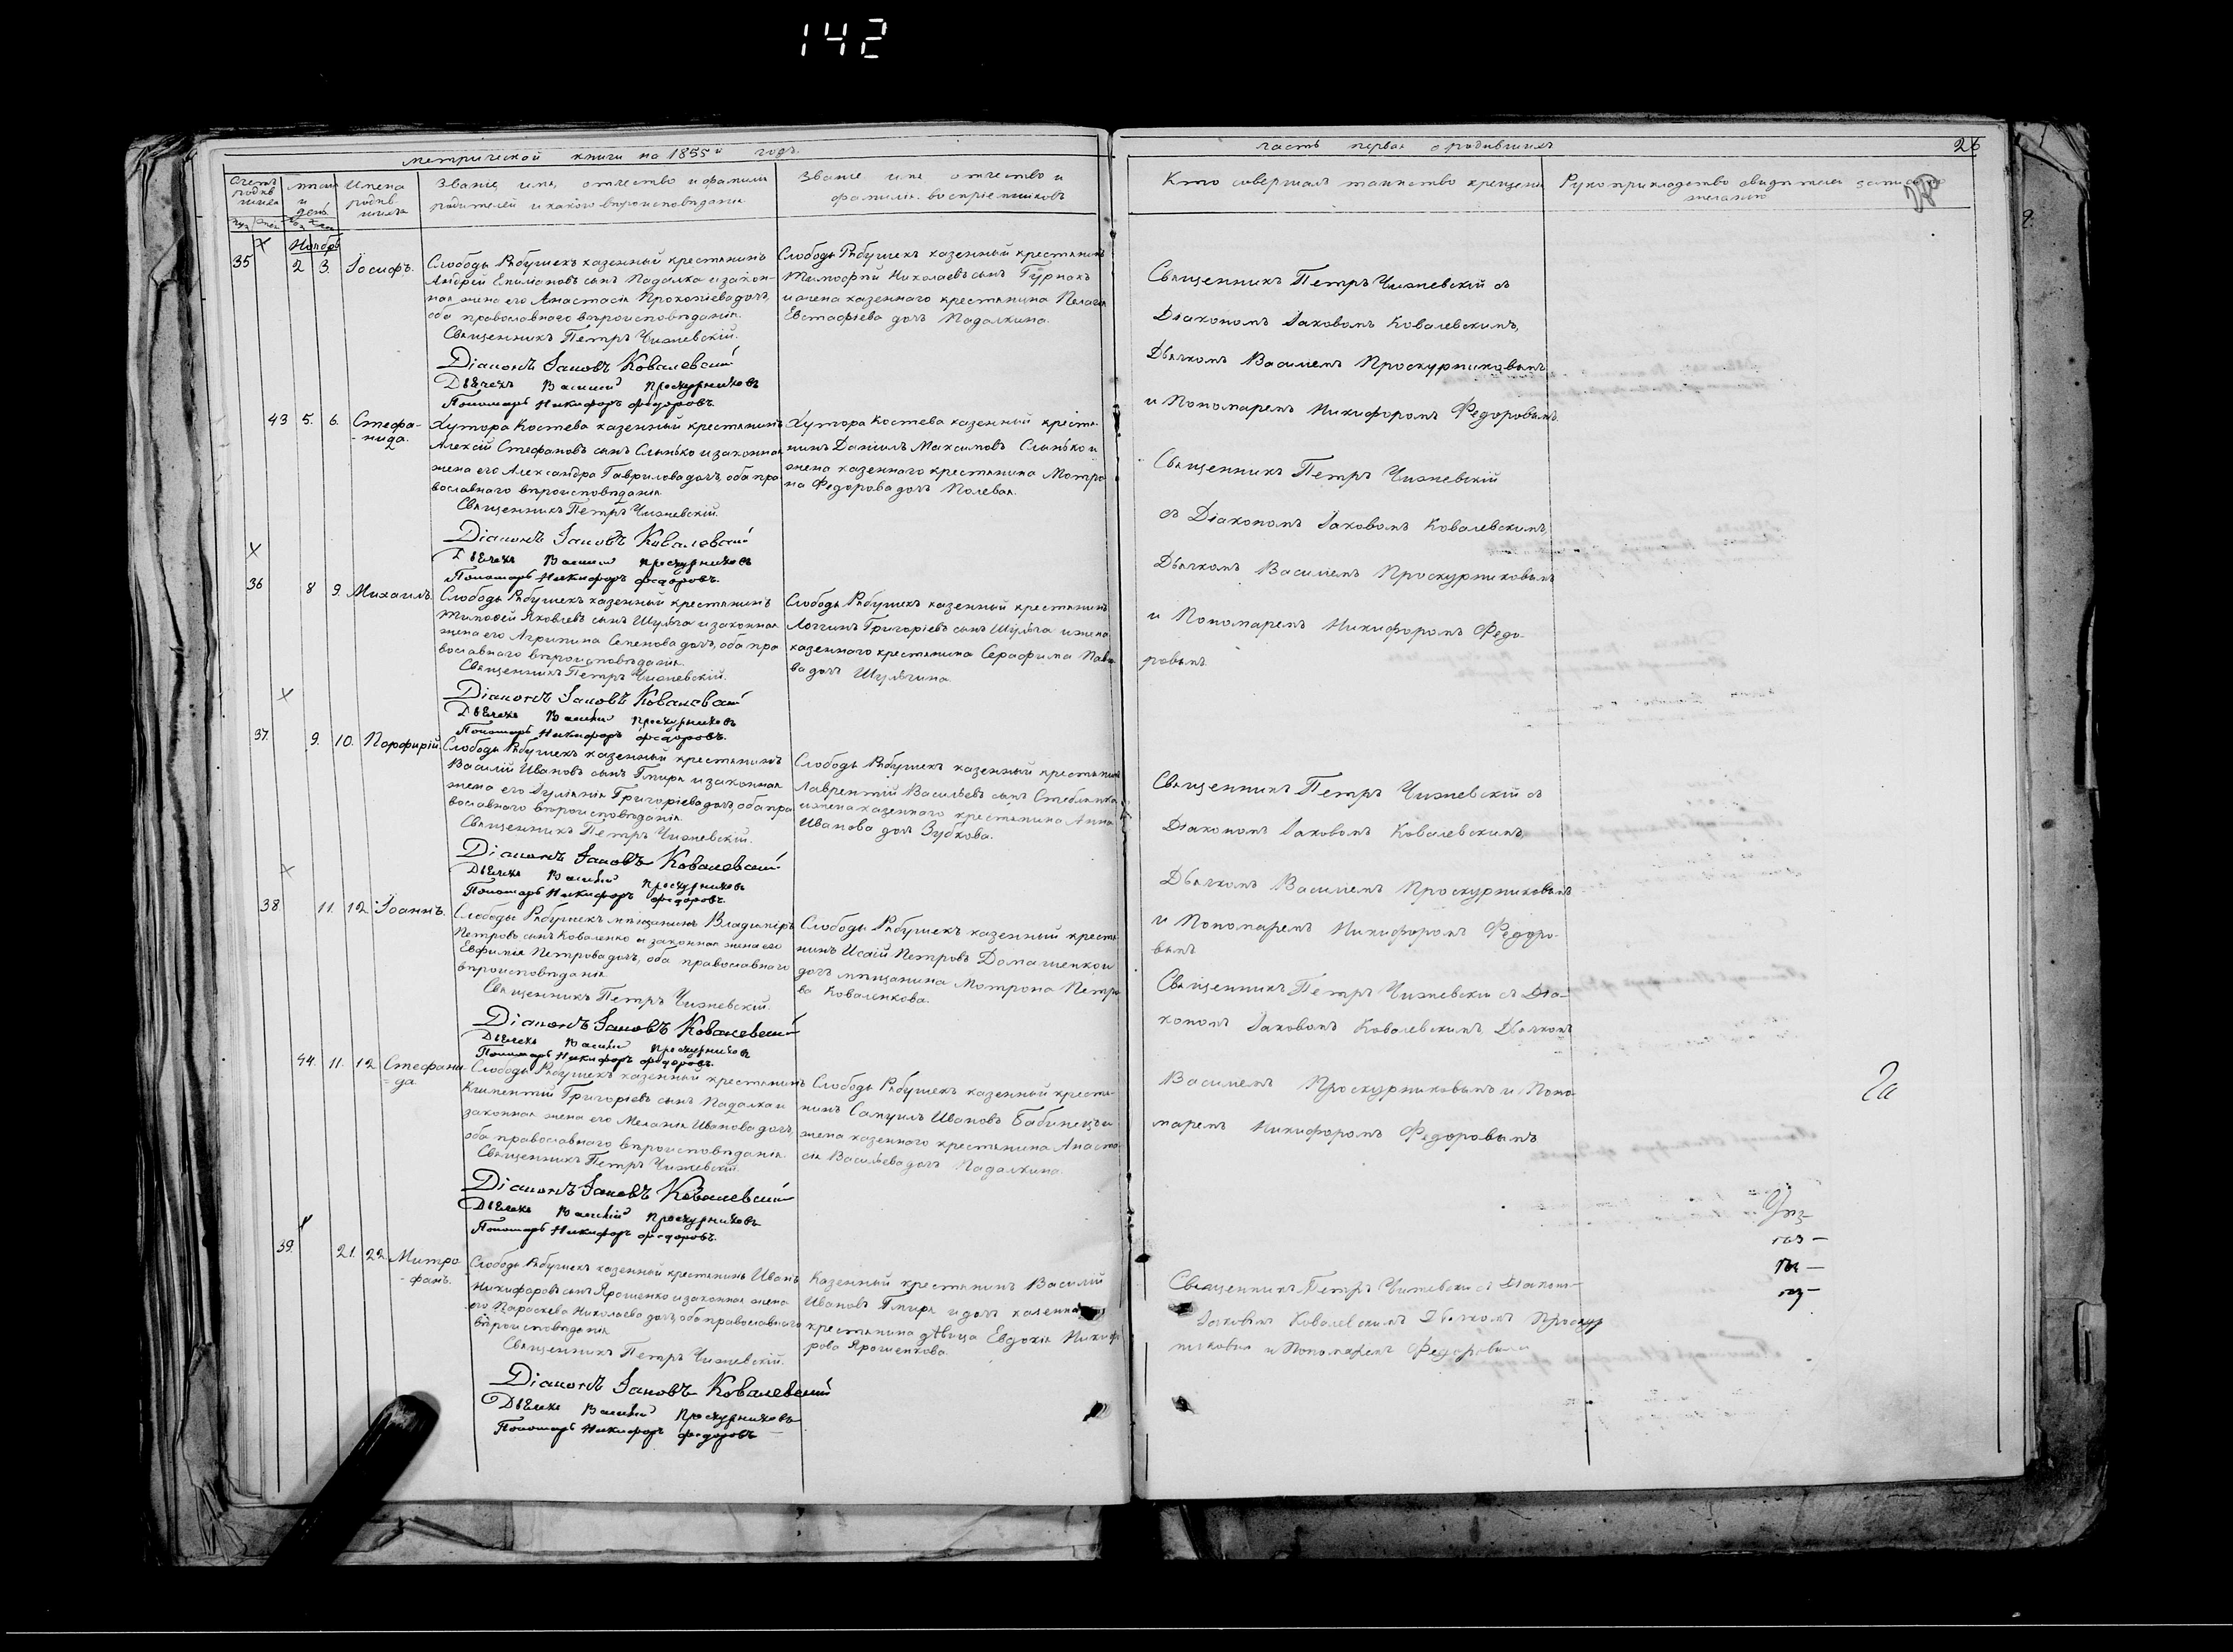 142
метрической книги на 1855й годъ
часть первая о родившихъ
26
Счетъ родившихся
мѣсяцъ и день
Имена родившихъ
Званіе, имя, отчество и фамилія
родителей и какого вѣроисповѣданія
Званіе, имя отчество и
фамилія воспріемниковъ
Кто совершалъ таинство крещенія
Рукоприкладство свидѣтелей записи по
желанію
Ноябрь
35 2 3. Іосифъ.
Слободы Рябушекъ казенный крестьянинъ
Андрей Емиліановъ сынъ Падалка и закон-
ная жена его Анастасія Прокопіева дочь,
оба православнаго вѣроисповѣданія.
Священникъ Петръ Чижевскій.
Діаконъ Іаковъ Ковалевскій
Дьячекъ Василій Проскурниковъ
Пономарь Никифоръ Федоровъ.
Слободы Рябушекъ казенный крестьянинъ
Тимофѣй Николаевъ сынъ Гурнакъ
и жена казеннаго крестьянина Пелагія
Евстафіева дочь Падалкина.
Священникъ Петръ Чижевскій съ
Діакономъ Іаковомъ Ковалевскимъ,
Дьячкомъ Василіемъ Проскурниковымъ
и Пономаремъ Никифоромъ Федоровымъ.
43 5. 6. Стефа-
-нида.
Хутора Костева казенный крестьянинъ
Алексѣй Стефановъ сынъ Слынько и законная
жена его Александра Гаврилова дочь, оба пра
вославнаго вѣроисповѣданія.
Священникъ Петръ Чижевскій.
Діаконъ Іаковъ Ковалевскій
Дьячекъ Василій Проскурниковъ
Пономарь Никифоръ Федоровъ.
Хутора Костева казенный крестья-
нинъ Даніилъ Максимовъ Слынько и
жена казеннаго крестьянина Мотро
на Федорова дочь Полевая.
Священникъ Петръ Чижевскій
съ Діакономъ Іаковомъ Ковалевскимъ,
Дьячкомъ Василіемъ Проскурниковымъ
и Пономаремъ Никифоромъ Федо-
ровымъ.
36 8 9. Михаилъ.
Слободы Рябушекъ казенный крестьянинъ
Тимофей Яковлевъ сынъ Шуляга и законная
жена его Агрипина Семенова дочь, оба пра
вославнаго вѣроисповѣданія.
Священникъ Петръ Чижевскій.
Діаконъ Іаковъ Ковалевскій
Дьячекъ Василій Проскурниковъ
Пономарь Никифоръ Федоровъ.
Слободы Рябушекъ казенный крестьянинъ
Логгинъ Григоріевъ сынъ Шуляга и жена
казеннаго крестьянина Серафима Павло
ва дочь Шулягина.
37. 9. 10. Порфирій.
Слободы Рябушекъ казенный крестьянинъ
Василій Ивановъ сынъ Гмиря и законная
жена его Іуліянія Григоріева дочь, оба пра
вославнаго вѣроисповѣданія.
Священникъ Петръ Чижевскій.
Діаконъ Іаковъ Ковалевскій
Дьячекъ Василій Проскурниковъ
Пономарь Никифоръ Федоровъ.
Слободы Рябушекъ казенный крестьянинъ
Лаврентій Васильевъ сынъ Стеблянка
и жена казеннаго крестьянина Анна
Иванова дочь Зубкова.
Священникъ Петръ Чижевскій съ
Діакономъ Іаковомъ Ковалевскимъ,
Дьячкомъ Василіемъ Проскурниковымъ
и Пономаремъ Никифоромъ Федоро-
вымъ
38. 11. 12. Іоаннъ.
Слободы Рябушекъ мѣщанинъ Владиміръ
Петровъ сынъ Коваленко и законная жена его
Евфимія Петрова дочь, оба православнаго
вѣроисповѣданія.
Священникъ Петръ Чижевскій.
Діаконъ Іаковъ Ковалевскій
Дьячекъ Василій Проскурниковъ
Пономарь Никифоръ Федоровъ.
Слободы Рябушекъ казенный кресть
нинъ Исаій Петровъ Домашенко и
дочь мѣщанина Мотрона Петро
ва Коваленкова.
Священникъ Петръ Чижевскій съ Діа-
кономъ Іаковомъ Ковалевскимъ, Дьячкомъ
Василіемъ Проскурниковымъ и Поно-
маремъ Никифоромъ Федоровымъ
44. 11. 12. Стефани-
да.
Слободы Рябушекъ казенный крестьянинъ
Климентій Григоріевъ сынъ Падалка и
законная жена его Меланія Иванова дочь,
оба православнаго вѣроисповѣданія.
Священникъ Петръ Чижевскій.
Діаконъ Іаковъ Ковалевскій
Дьячекъ Василій Проскурниковъ
Пономарь Никифоръ Федоровъ.
Слободы Рябушекъ казенный крестья-
нинъ Самуилъ Ивановъ Бабинецъ и
жена казеннаго крестьянина Анаста
сія Васильева дочь Падалкина.
39. 21. 22. Митро
-фанъ.
Слободы Рябушекъ казенный крестьянинъ Иванъ
Никифоровъ сынъ Ярошенко и законная жена
его Параскева Николаева дочь, оба православнаго
вѣроисповѣданія.
Священникъ Петръ Чижевскій.
Діаконъ Іаковъ Ковалевскій
Дьячекъ Василій Проскурниковъ
Пономарь Никифоръ Федоровъ
Казенный крестьянинъ Василій
Ивановъ Гмиря и дочь казеннаго
крестьянина дѣвица Евдокія Никифо
рова Ярошенкова.
Священникъ Петръ Чижевскій съ Діаконом
Іаковомъ Ковалевскимъ Дьячкомъ Проскур
никовым и Пономаремъ Федоровым